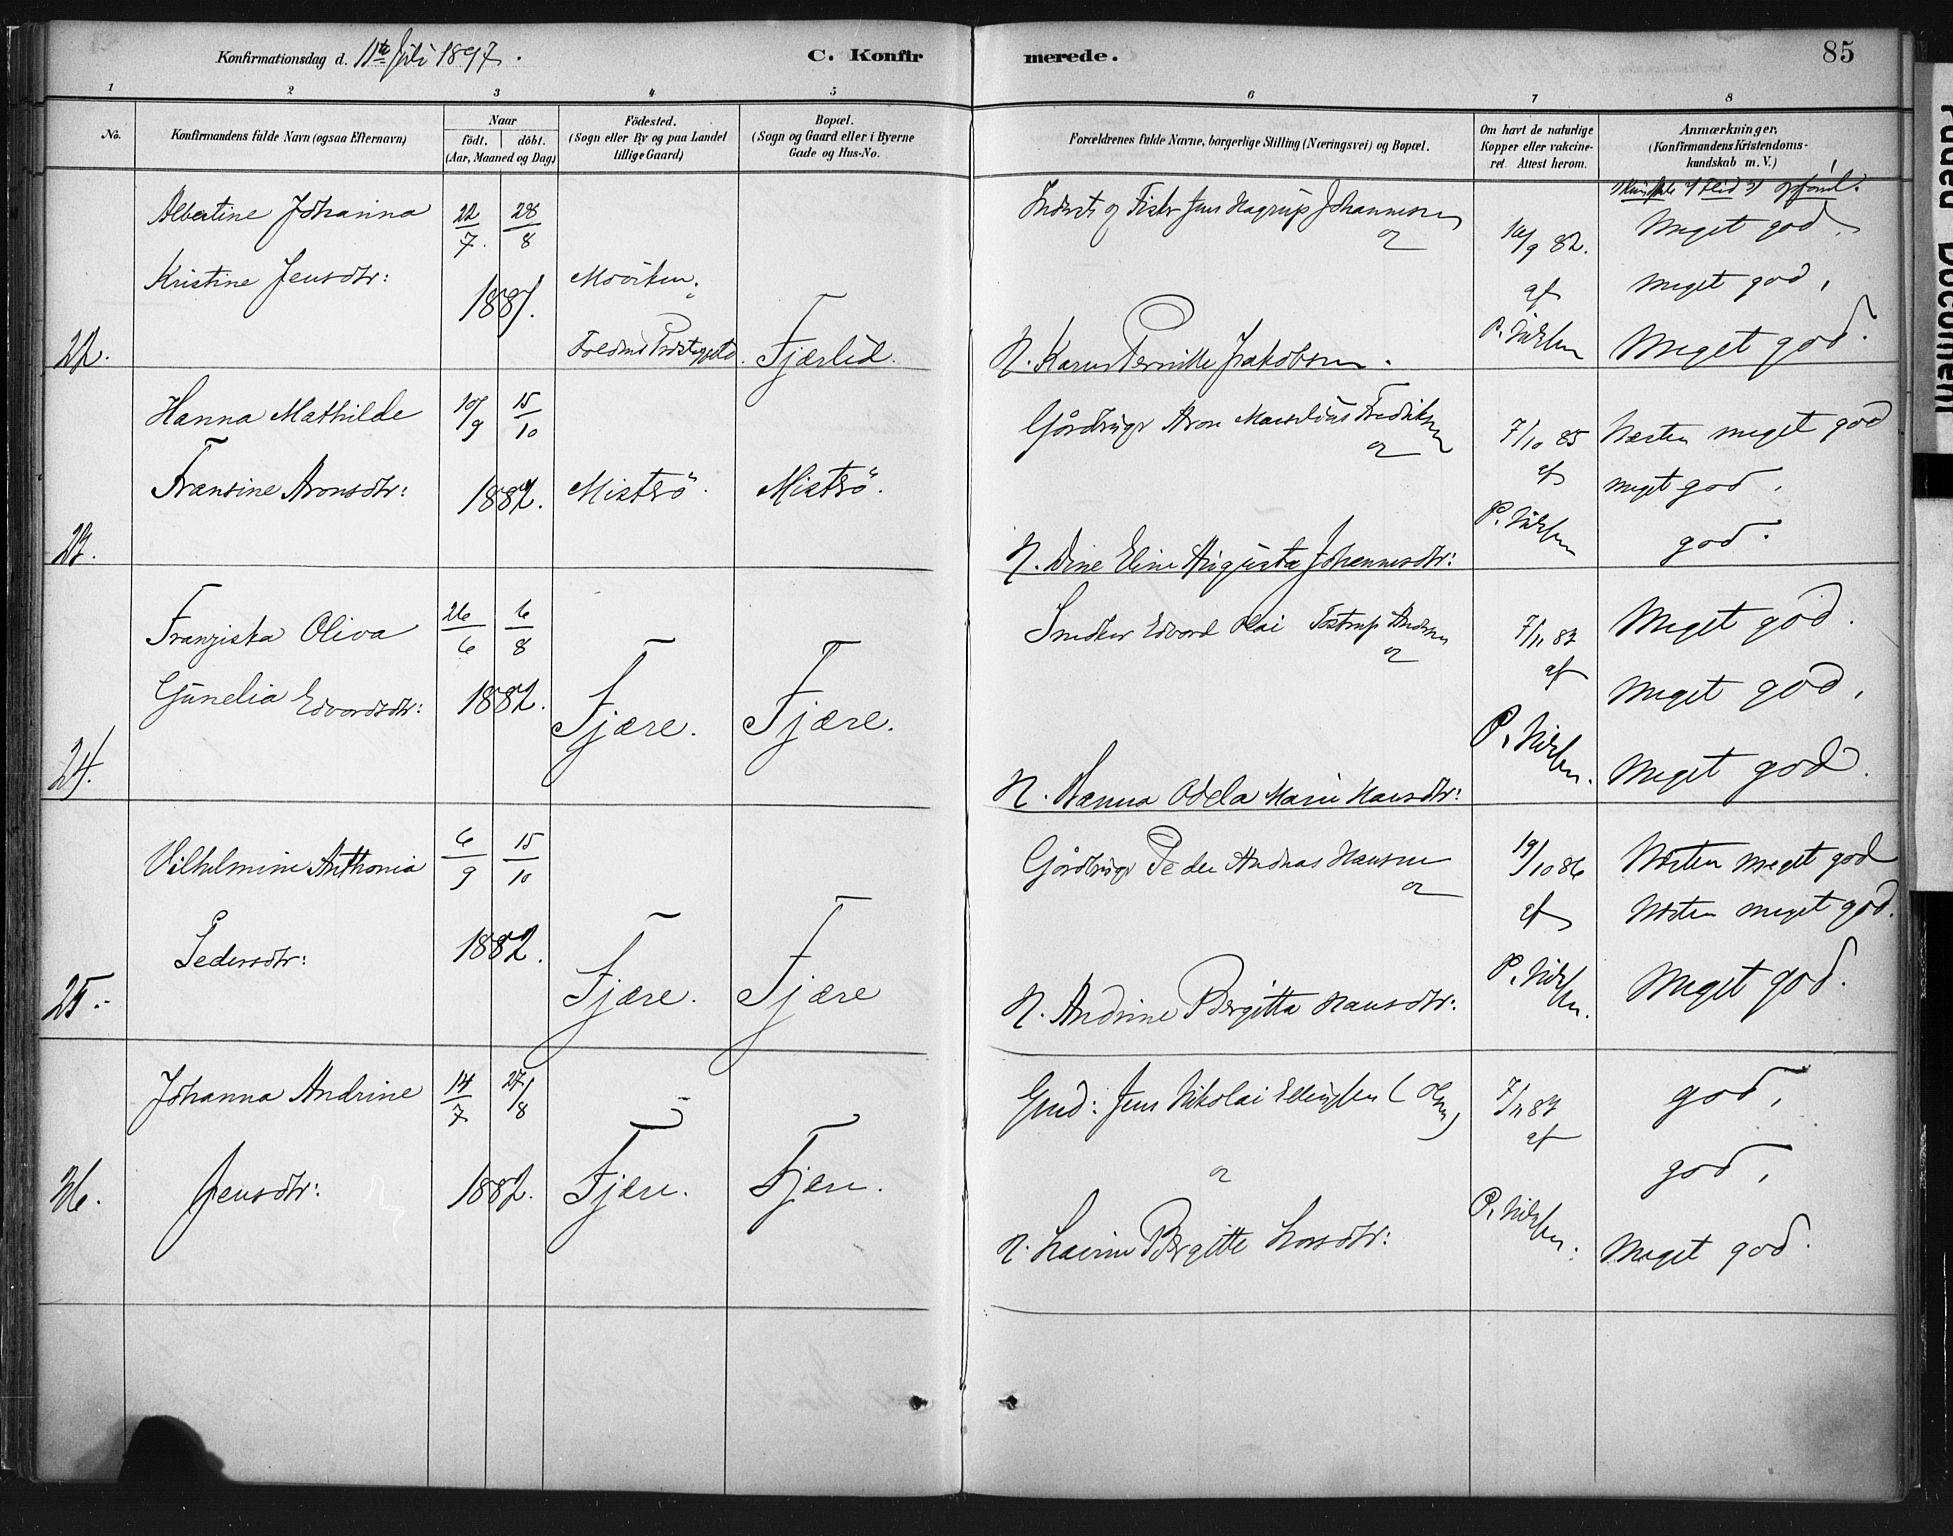 Konfirmationsdag d. 11te Juli 1897.
C. Konfirmerede.
85
1 2 3 4 5 6 7 8
No.
Konfirmandens fulde Navn (ogsaa Efternavn)
Naar
födt. döbt.
(Aar, Maaned og Dag)
Födested.
(Sogn eller By og paa Landet
tillige Gaard)
Bopæl.
(Sogn og Gaard eller i Byerne
Gade og Hus-No.
Forældrenes fulde Navne, borgerlige Stilling (Næringsvei) og Bopæl.
Om havt de naturlige
Kopper eller vakcine-
ret. Attest herom.
Anmærkninger,
(Konfirmandens Kristendoms-
kundskab m. V.)
22.
Albertine Johanna
Kristine Jensdtr:
22/7. 28/8
1881.
Fjærlid.
Jens Hagrup Johannesen
og
H. Karen Pernille Jakobsen.
16/9 82.
af
P. Nilsen
Meget god.
meget god,
Meget god.
23.
Hanna Mathilde
Fransine Aronsdtr:
10/9 15/10
1882.
Miströ.
Miströ.
Gårdbruger Aron Marselius Fredriksen
og
H. Dine Eline Augusta Johannesdtr:
7/10 85
af
P. Nilsen
Næsten meget god
meget god,
god.
24.
Franziska Oliva
Gunelia Edvardsdtr:
26/6 6/8
1882.
Fjære.
Fjære.
Snedker Edvard Olai Tostrup Andersen
og
H. Hanna Odela Marie Hansdtr:
7/11 87
af
P. Nilsen.
Meget god.
Meget god,
Meget god.
25.
Vilhelmine Anthonia
Pedersdtr:
6/9 15/10
1882.
Fjære.
Fjære
Gårdbruger Peder Andreas Hansen
og
H. Andrine Bergitta Hansdtr:
19/10 86
af
P. Nilsen.
Næsten meget god
Næsten meget god.
Meget god.
26.
Johanna Andrine
Jensdtr:
14/7 27/8
1882.
Fjære.
Fjære.
Gmd: Jens Nikolai Ellingsen
og
H. Lavine Bergitte Larsdtr:
7/11 87
af
P. Nilsen.
god,
god,
Meget god.
Paded Document